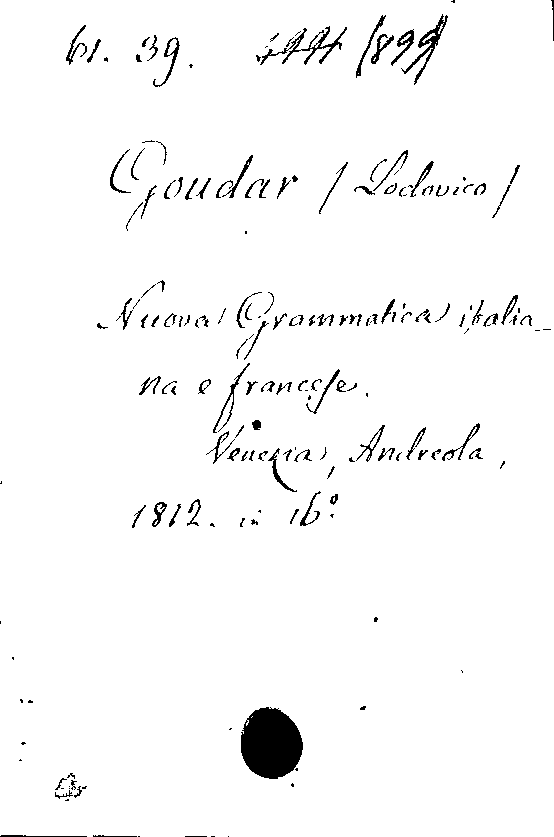 61. 39. (899)
Goudar (Lodovico)
Nuova Grammatica italia-
na e francese.
Venezia, Andreola,
1812. in 16°